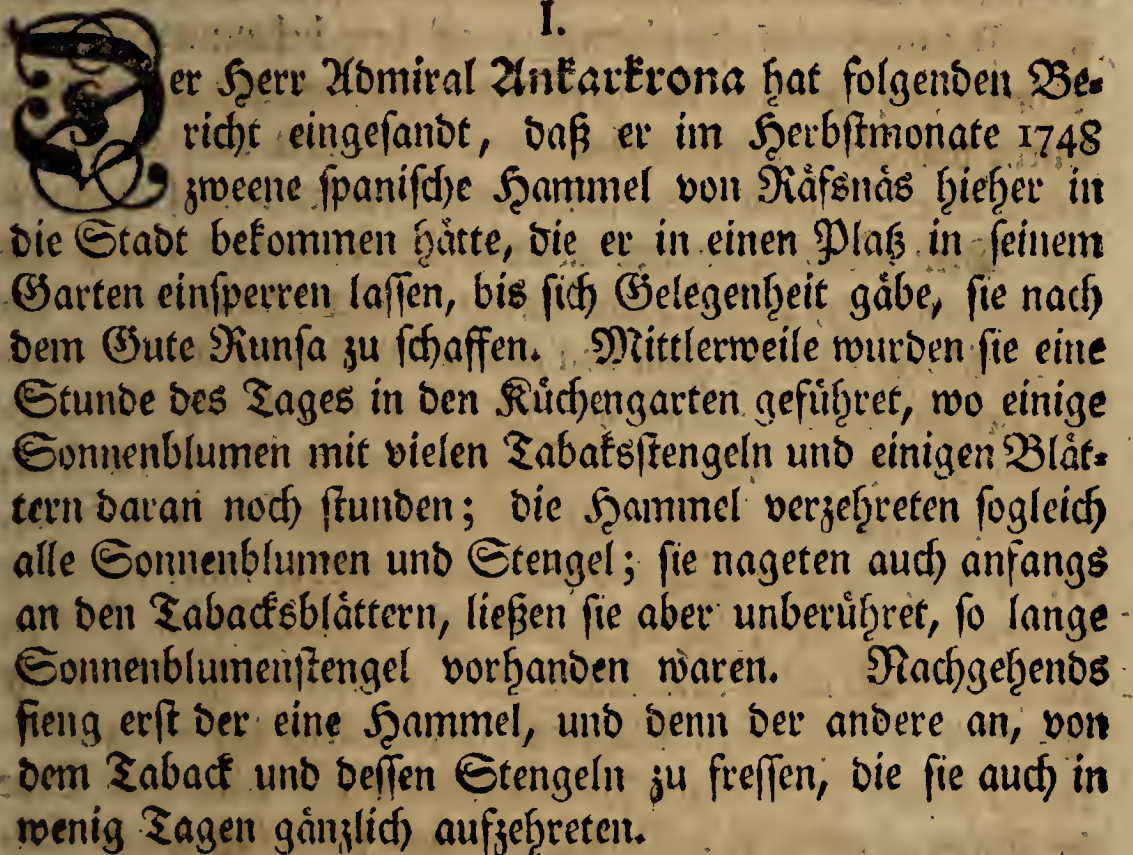 I.
Der Herr Admiral Ankarkrona hat folgenden Be-
richt eingesandt, daß er im Herbstmonate 1748
zweene spanische Hammel von Räfsnäs hieher in
die Stadt bekommen hätte, die er in einen Platz in seinem
Garten einsperren lassen, bis sich Gelegenheit gäbe, sie nach
dem Gute Runsa zu schaffen. Mittlerweile wurden sie eine
Stunde des Tages in den Küchengarten geführet, wo einige
Sonnenblumen mit vielen Tabaksstengeln und einigen Blät-
tern daran noch stunden; die Hammel verzehreten sogleich
alle Sonnenblumen und Stengel; sie nageten auch anfangs
an den Tabacksblättern, ließen sie aber unberühret, so lange
Sonnenblumenstengel vorhanden waren. Nachgehends
fieng erst der eine Hammel, und denn der andere an, von
dem Taback und dessen Stengeln zu fressen, die sie auch in
wenig Tagen gänzlich aufzehreten.